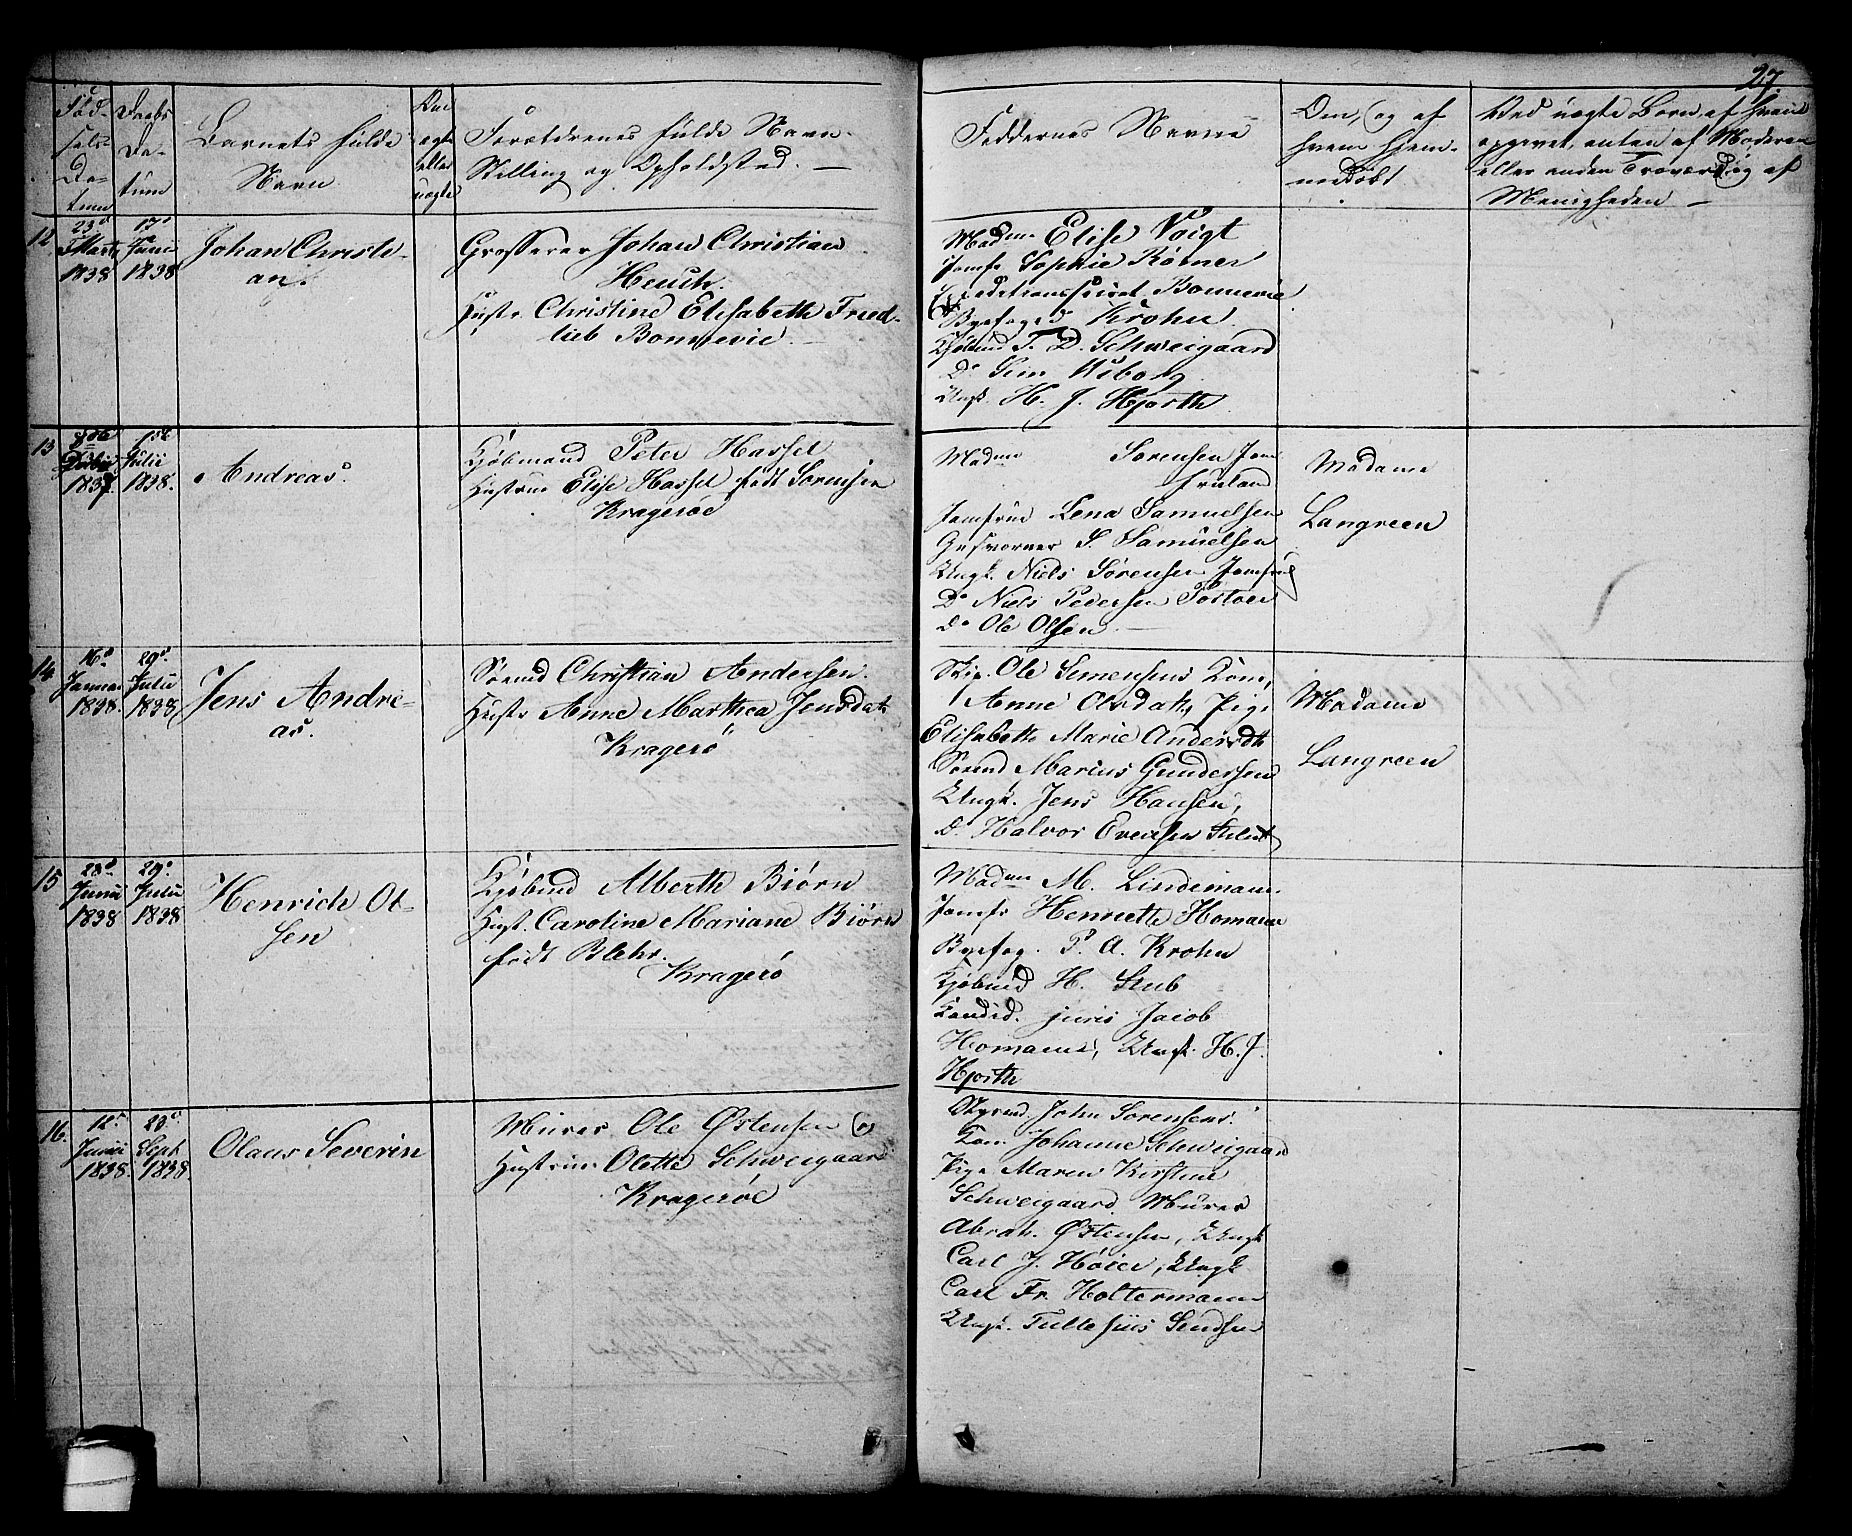 27.
Fød-
sels-
Da-
tum
Daabs
Da-
tum
Barnets fulde
Navn
Om
ægte
eller
uægte
Forældrenes fulde Navn
Stilling og Opholdsted. —
Faddernes Navne
Om, og af
hvem hjem-
medøbt
Ved uægte Børn, af hvem
opgivet, enten af Moderen
eller anden Troværdig af
Menigheden —
12
23d
Marts
1838
17d
Junii
1838
Johan Christi-
an.
Grosserer Johan Christian
Heuch.
Hustr. Christine Elisabeth Fried-
lieb Bonnevie —
Madme Elise Voigt
Jomfr Sophie Körner
Bonnevie
Byefoged Krohn.
Kjøbmd T. D. Schweigaard
Do Sim Wiborg
Ungk. H. J. Hjorth
13
1837.
1ste
Julii
1838.
Andreas.
Kjøbmand Peter Hassel
Hustrue Elise Hassel født Sørensen
Kragerøe
Madme Sørensen Jom-
fruland
Jomfrue Lena Samuelsen
S. Samuelsen
Ungk. Niels Sørensen Jomfrul
Do Niels Pedersen
do Ole Olsen —
Madame
Langreen
14
16d
Januar
1838.
29d
Julii
1838
Jens Andre-
as.
Sømd Christian Andersen.
Hustr Anne Marthea Jensdat
Kragerö
Skip. Ole Simensens Kone,
Anne Olsdatt, Pige
Elisabeth Marie Andersdt
Sømd Marius Gundersen
Ungk. Jens Hansen,
D. Halvor Evensen
Madame
Langreen
15
28d
Junii
1838
29d
Julii
1838
Henrich Ol-
sen
Kjøbmd Alberth Biørn
Hust. Caroline Mariane Biørn
født Blehr.
Kragerö
Madme M. Lindemann
Jomfr Henriette Homann
Byefog. P. A. Krohn
Kjøbmd H. Stub
Candid. juris Jacob
Homann, Ungk. H. J.
Hjorth
16.
12d
Junii
1838.
23d
Sept
1838.
Olaus Severin
Murer Ole Østensen og
Hustrue Olette Schweigaard
Kragerøe
Styrmd John Sørensens
Kone Johanne Schweigaard
Pige Maren Kirstine
Schweigaard Murer
Abrah. Østensen, Ungk
Carl J. Høier, Ungk
Carl Fr. Holtermann
Ungk. Tullesius